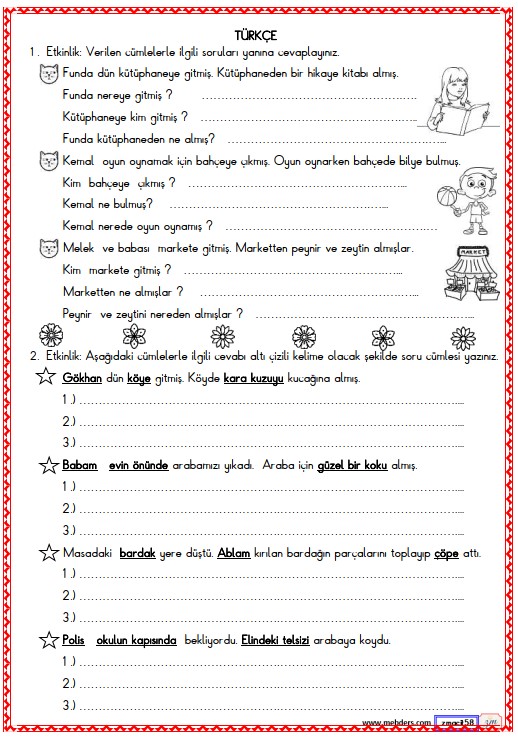 TÜRKÇE
1. Etkinlik: Verilen cümlelerle ilgili soruları yanına cevaplayınız.
Funda dün kütüphaneye gitmiş. Kütüphaneden bir hikaye kitabı almış.
Funda nereye gitmiş ? ……………………………………………………
Kütüphaneye kim gitmiş ? ……………………………………………………
Funda kütüphaneden ne almış? ……………………………………………………
Kemal oyun oynamak için bahçeye çıkmış. Oyun oynarken bahçede bilye bulmuş.
Kim bahçeye çıkmış ? ……………………………………………………
Kemal ne bulmuş? ……………………………………………………
Kemal nerede oyun oynamış ? ……………………………………………………
Melek ve babası markete gitmiş. Marketten peynir ve zeytin almışlar.
MARKET
Kim markete gitmiş ? ……………………………………………………
Marketten ne almışlar ? ……………………………………………………
Peynir ve zeytini nereden almışlar ? ……………………………………………………
2. Etkinlik: Aşağıdaki cümlelerle ilgili cevabı altı çizili kelime olacak şekilde soru cümlesi yazınız.
Gökhan dün köye gitmiş. Köyde kara kuzuyu kucağına almış.
1.) ……………………………………………………
2.) ……………………………………………………
3.) ……………………………………………………
Babam evin önünde arabamızı yıkadı. Araba için güzel bir koku almış.
1.) ……………………………………………………
2.) ……………………………………………………
3.) ……………………………………………………
Masadaki bardak yere düştü. Ablam kırılan bardağın parçalarını toplayıp çöpe attı.
1.) ……………………………………………………
2.) ……………………………………………………
3.) ……………………………………………………
Polis okulun kapısında bekliyordu. Elindeki telsizi arabaya koydu.
1.) ……………………………………………………
2.) ……………………………………………………
3.) ……………………………………………………
www.mebders.com